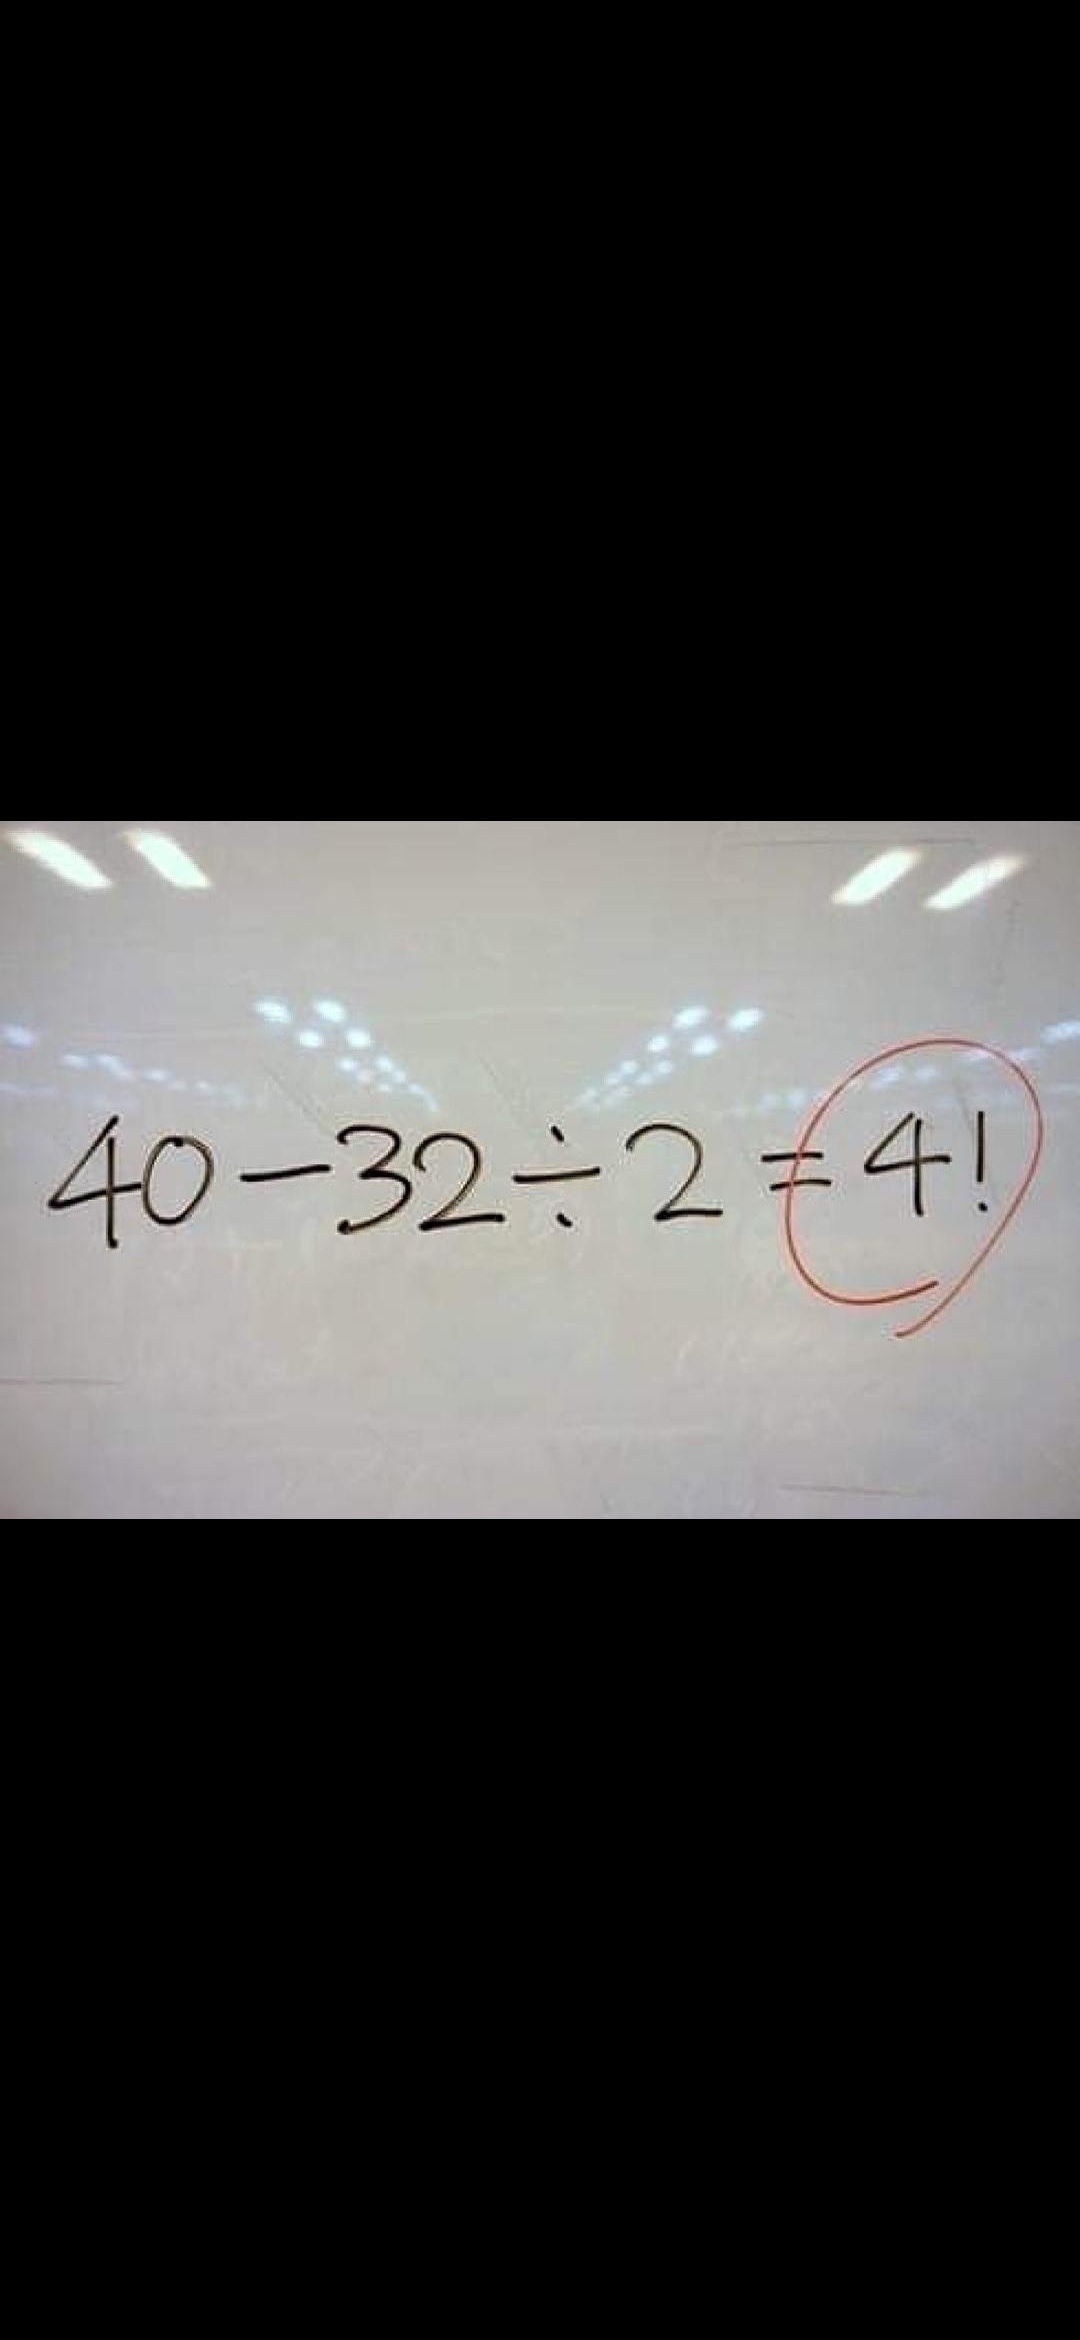 40-32÷2=4!